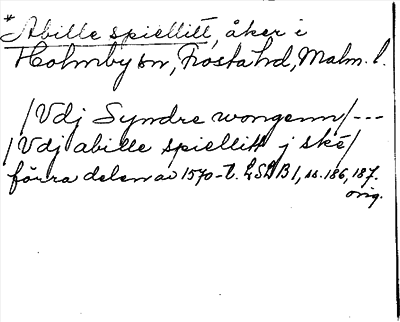 *Abille spiellitt, åker i
Holmby sn, Frosta hd, Malm. l.
/Vdj Syndre wongenn/---
/Vdj abille spiellitt j ske/
förra delen av 1570-t. LSDB I, ss. 186, 187.
orig.